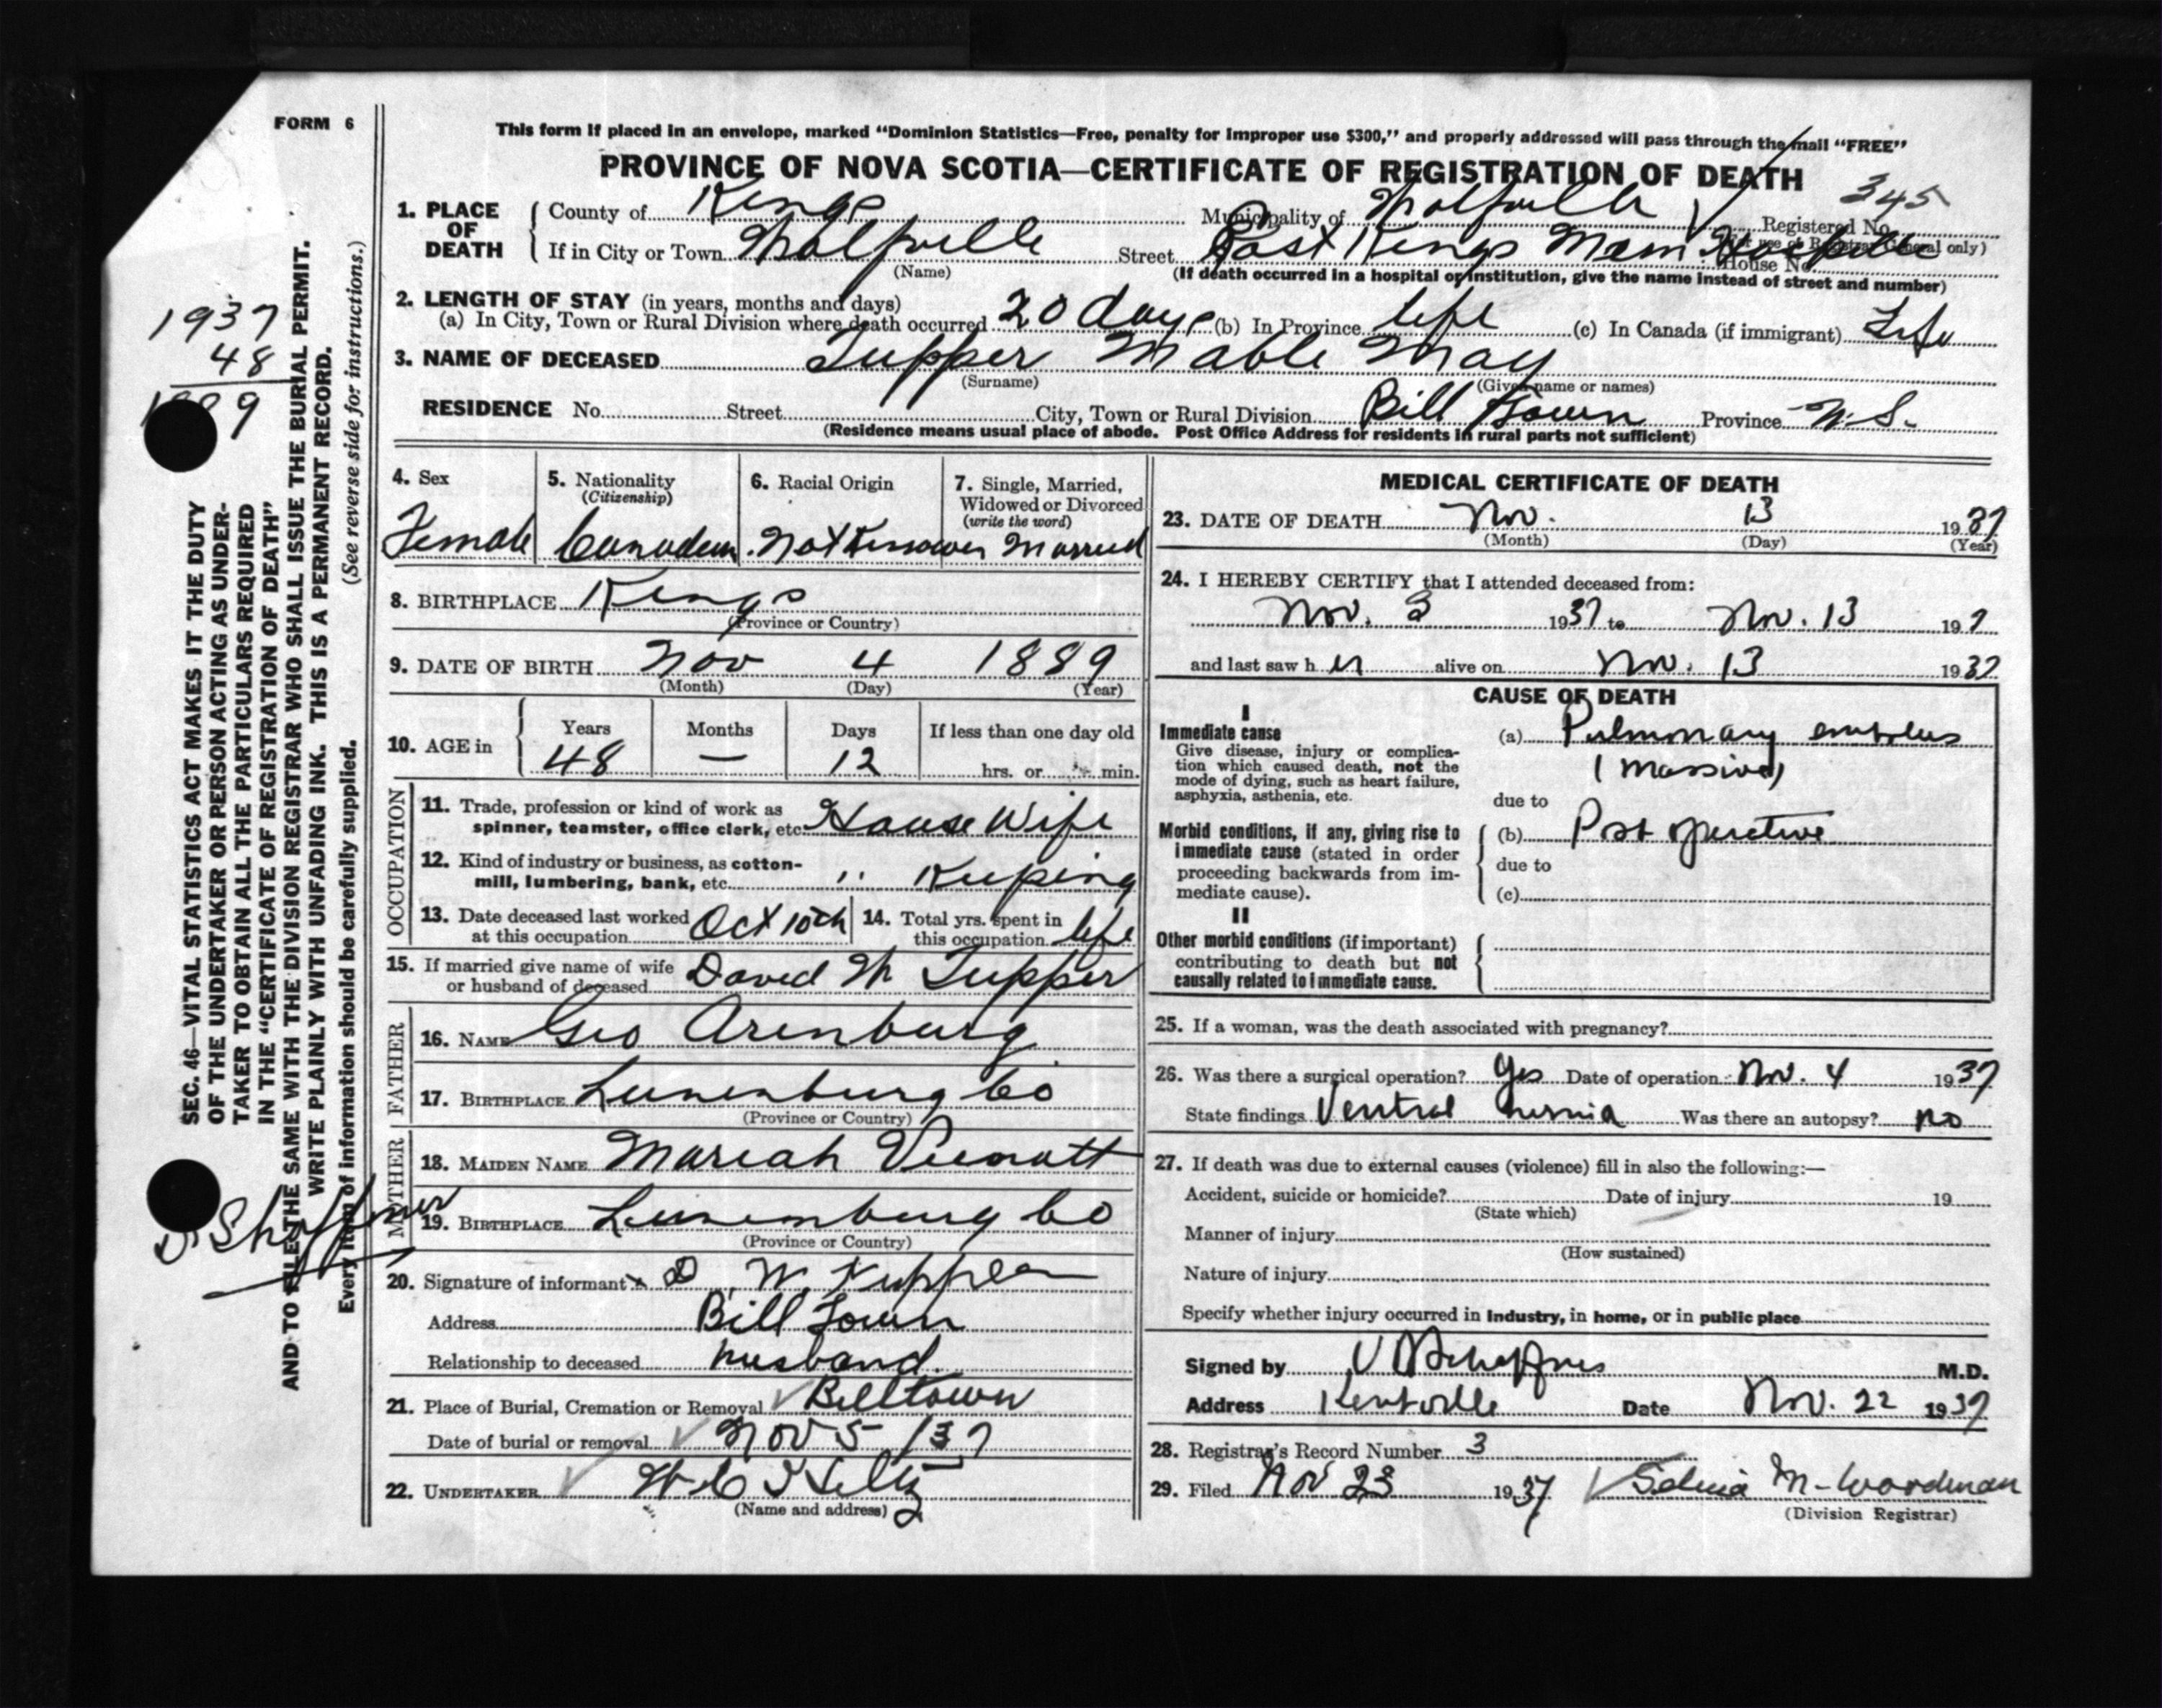 FORM 6
This form if placed in an envelope, marked "Dominion Statistics—Free, penalty for improper use $300," and properly addressed will pass through the mail "FREE"
PROVINCE OF NOVA SCOTIA—CERTIFICATE OF REGISTRATION OF DEATH
345
1. PLACE OF DEATH
County of Kings Municipality of Wolfville Registered No.
(For use of Registrar General only)
If in City or Town Wolfville Street East Kings Mem. House No.
(Name) (If death occurred in a hospital or institution, give the name instead of street and number)
2. LENGTH OF STAY (in years, months and days)
(a) In City, Town or Rural Division where death occurred 20 days (b) In Province life (c) In Canada (if immigrant) Life
3. NAME OF DECEASED Tupper Mable May
(Surname) (Given name or names)
RESIDENCE No. Street City, Town or Rural Division Bill Town Province N.S.
(Residence means usual place of abode. Post Office Address for residents in rural parts not sufficient)
4. Sex 5. Nationality (Citizenship) 6. Racial Origin 7. Single, Married, Widowed or Divorced (write the word)
Female Canadian Not Known Married
8. BIRTHPLACE Kings
(Province or Country)
9. DATE OF BIRTH Nov 4 1889
(Month) (Day) (Year)
10. AGE in Years Months Days If less than one day old
48 — 12 hrs. or min.
OCCUPATION
11. Trade, profession or kind of work as
spinner, teamster, office clerk, etc. House Wife
12. Kind of industry or business, as cotton-
mill, lumbering, bank, etc. " Keeping
13. Date deceased last worked at this occupation Oct 10th 14. Total yrs. spent in this occupation life
15. If married give name of wife
or husband of deceased David W Tupper
FATHER
16. NAME Geo Arenburg
17. BIRTHPLACE Lunenburg Co
(Province or Country)
MOTHER
18. MAIDEN NAME Mariah
19. BIRTHPLACE Lunenburg Co
(Province or Country)
20. Signature of informant x D. W. Tupper
Address Bill Town
Relationship to deceased husband.
21. Place of Burial, Cremation or Removal Billtown
Date of burial or removal Nov 5 / 37
22. UNDERTAKER W C
(Name and address)
MEDICAL CERTIFICATE OF DEATH
23. DATE OF DEATH Nov. 13 1937
(Month) (Day) (Year)
24. I HEREBY CERTIFY that I attended deceased from:
Nov. 3 1937 to Nov. 13 197
and last saw her alive on Nov. 13 1937
CAUSE OF DEATH
I
Immediate cause
Give disease, injury or complica-
tion which caused death, not the
mode of dying, such as heart failure,
asphyxia, asthenia, etc.
(a) Pulmonary embolus
(Massive)
due to
Morbid conditions, if any, giving rise to
immediate cause (stated in order
proceeding backwards from im-
mediate cause).
(b) Post operative
due to
(c)
II
Other morbid conditions (if important)
contributing to death but not
causally related to immediate cause.
25. If a woman, was the death associated with pregnancy?
26. Was there a surgical operation? Yes Date of operation Nov. 4 1937
State findings Ventral hernia Was there an autopsy? no
27. If death was due to external causes (violence) fill in also the following:—
Accident, suicide or homicide? Date of injury 19
(State which)
Manner of injury
(How sustained)
Nature of injury
Specify whether injury occurred in industry, in home, or in public place
Signed by V D Schaffner M.D.
Address Kentville Date Nov. 22 1937
28. Registrar's Record Number 3
29. Filed Nov 23 1937 M. Woodman
(Division Registrar)
1937
48
1889
SEC. 46—VITAL STATISTICS ACT MAKES IT THE DUTY
OF THE UNDERTAKER OR PERSON ACTING AS UNDER-
TAKER TO OBTAIN ALL THE PARTICULARS REQUIRED
IN THE "CERTIFICATE OF REGISTRATION OF DEATH"
AND TO FILE THE SAME WITH THE DIVISION REGISTRAR WHO SHALL ISSUE THE BURIAL PERMIT.
WRITE PLAINLY WITH UNFADING INK. THIS IS A PERMANENT RECORD.
Every item of information should be carefully supplied. (See reverse side for instructions.)
Dr Shaffner